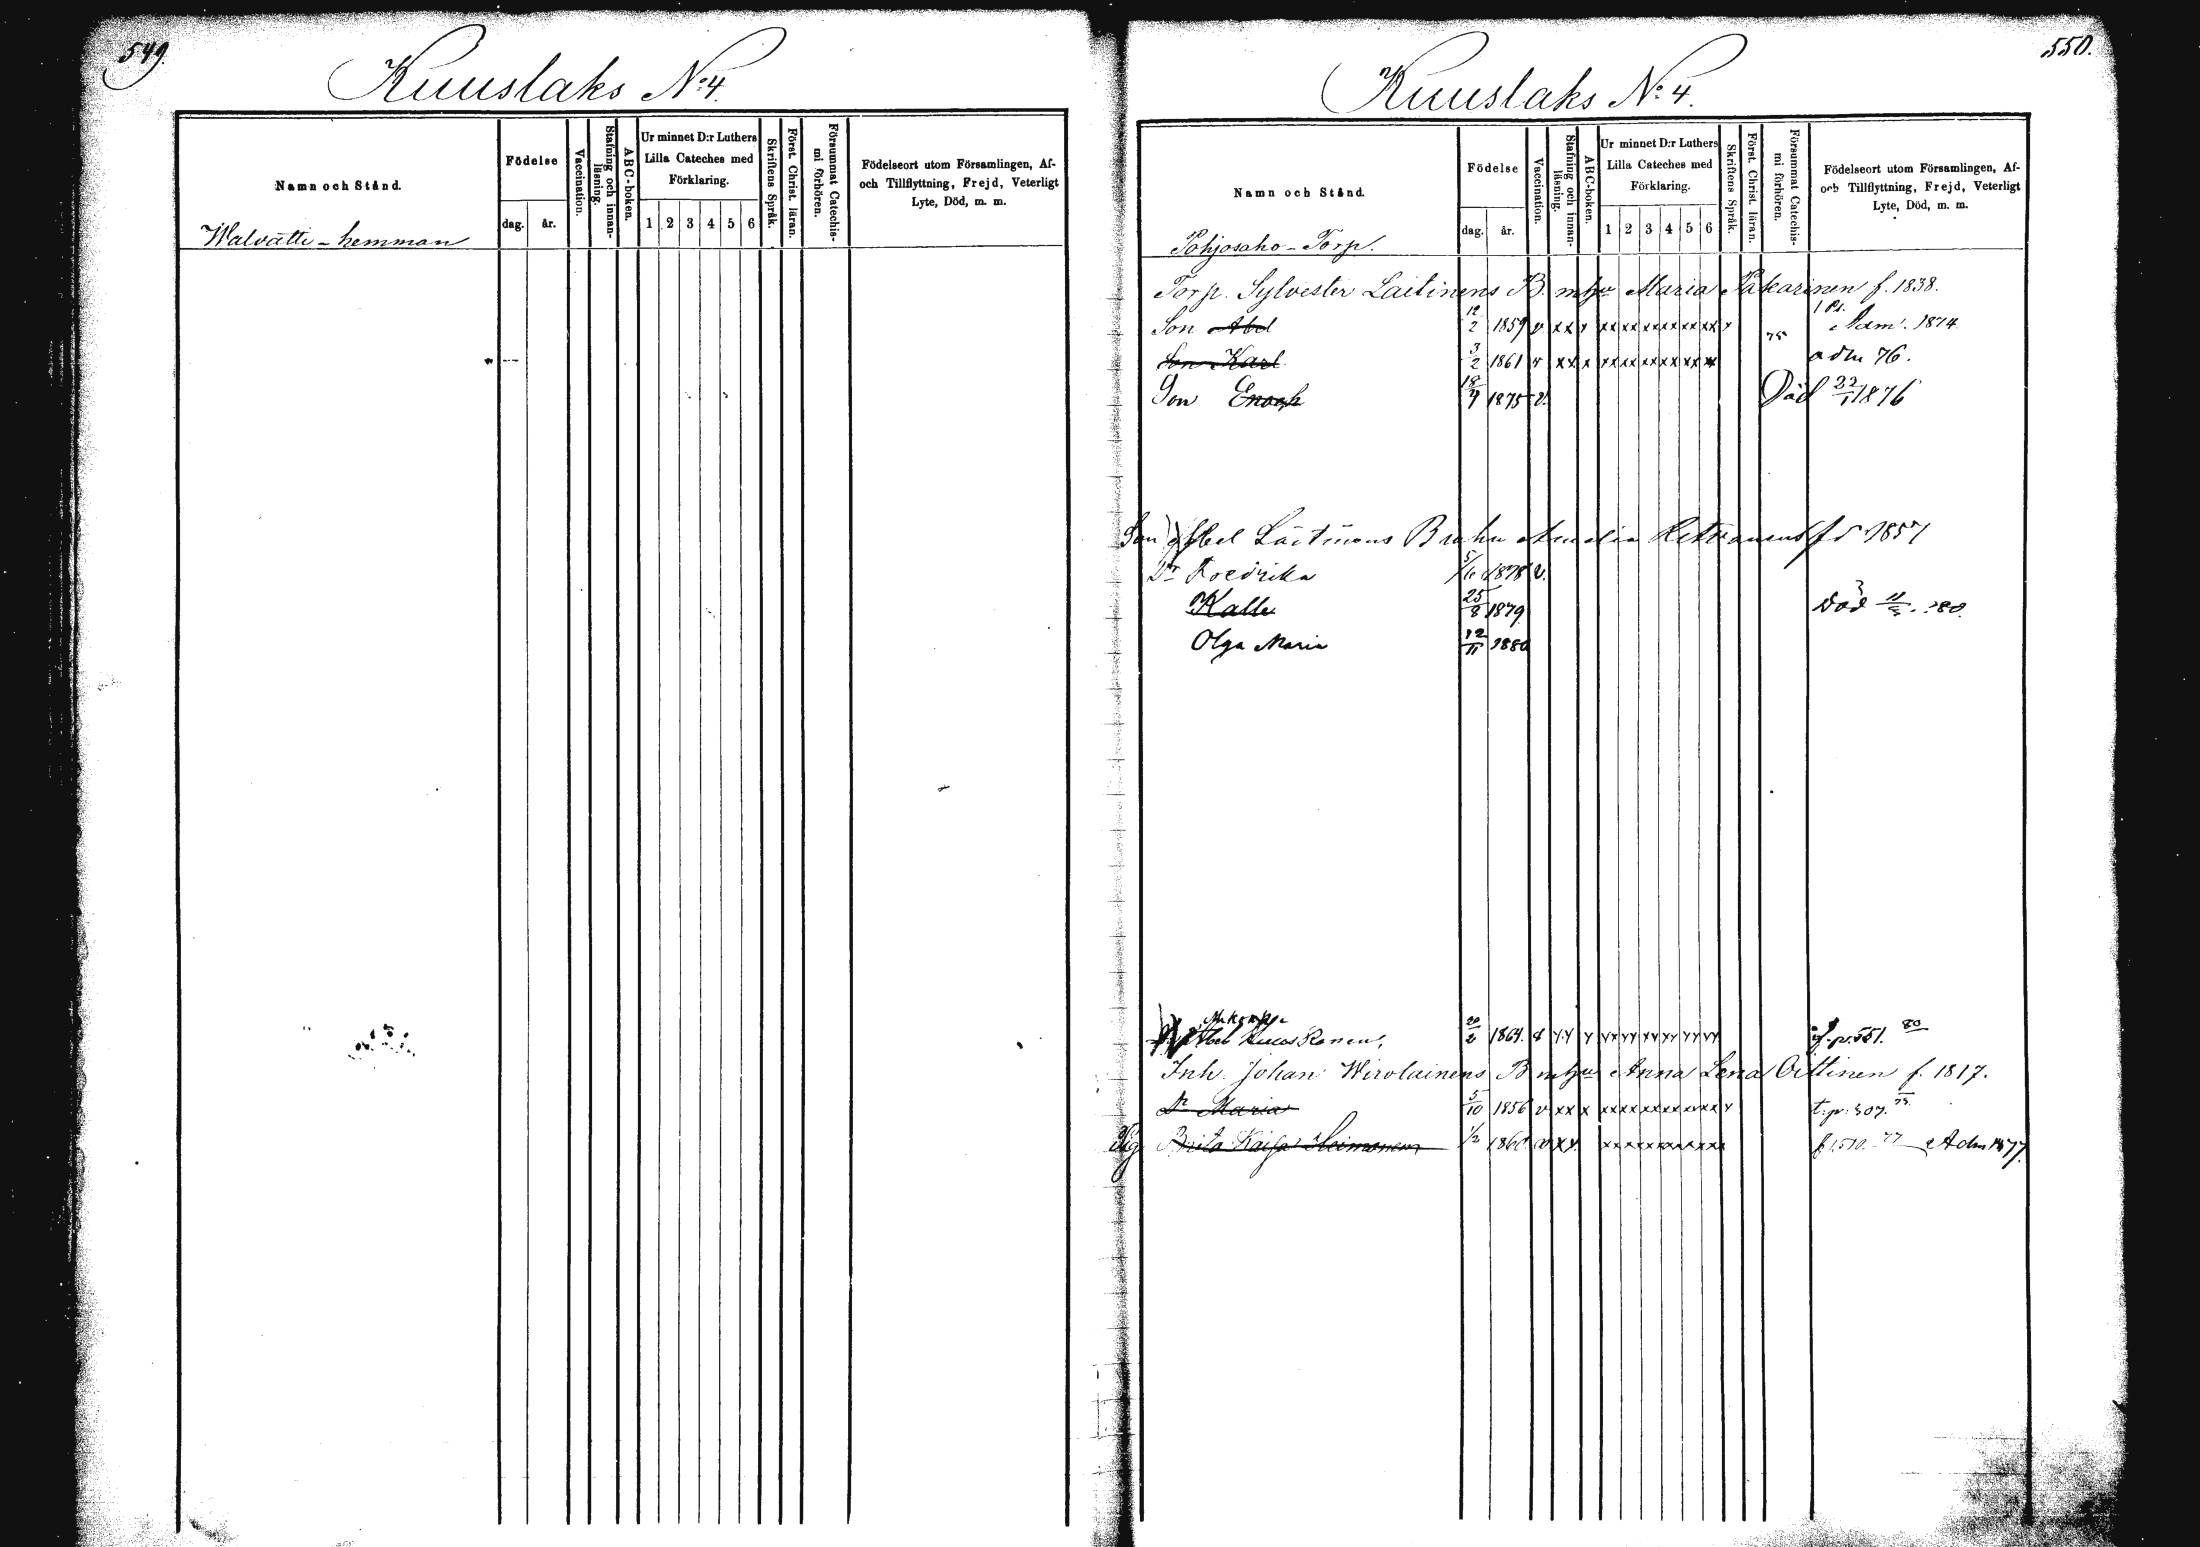 549.
Kuuslaks No 4.
Namn och Stånd.
Födelse
dag. år.
Vaccination.
Stafning och innan-läsning.
ABC-boken.
Ur minnet D:r Luthers Lilla Cateches med Förklaring.
1 2 3 4 5 6
Skriftens Språk.
Först. Christ. läran.
Försummat Catechis-mi förhören.
Födelseort utom Församlingen, Af- och Tillflyttning, Frejd, Veterligt Lyte, Död, m. m.
Walvatti-hemman
550.
Kuuslaks No 4.
Namn och Stånd.
Födelse
dag. år.
Vaccination.
Stafning och innan-läsning.
ABC-boken.
Ur minnet D:r Luthers Lilla Cateches med Förklaring.
1 2 3 4 5 6
Skriftens Språk.
Först. Christ. läran.
Försummat Catechis-mi förhören.
Födelseort utom Församlingen, Af- och Tillflyttning, Frejd, Veterligt Lyte, Död, m. m.
Pohjosaho-Torp.
Torp. Sylvester Laitinens B. mhu Maria Pakarinen f. 1838.
Son Abel 12/2 1859 v xx x xx xx xx xx xx xx x 75 Adm. 1874
Son Karl 3/2 1861 v xx x xx xx xx xx xx xx adm 76.
Son Enoch 18/4 1875 v. Död 22/1 1876
Son Abel Laitinens B mhu Amalia 1857
Dr Fredrika 5/6 1878 v.
Kalle 25/8 1879 Död 11/3 80.
Olga Maria 12/11 1880
Abel 20/2 1864. v xx x xx xx xx xx xx xx p. 551. 80
Inh. Johan Wirolainens B mhu Anna Lena Oittinen f. 1817.
Dr Maria 5/10 1856 v xx x xx xx xx xx xx xx x t. p. 507. 75.
Pig Brita Kaisa Heimonen 1/2 1860 v xx. xx xx xx xx xx xx 77 Adm 1877